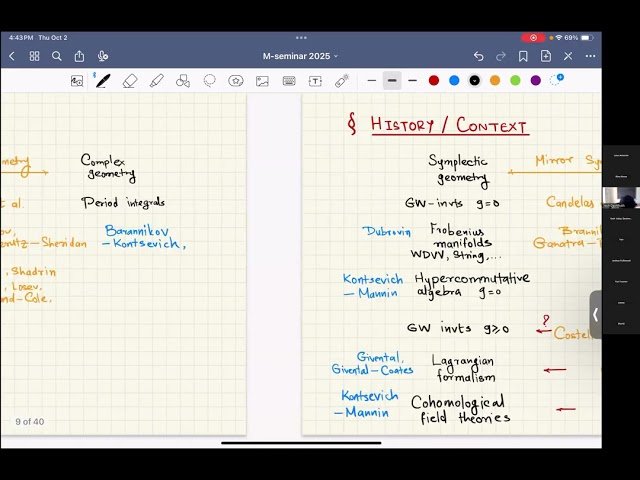 4:43PM Thu Oct 2
69%
M-seminar 2025
Complex
geometry
Period integrals
Barannikov
- Kontsevich,
-Sheridan
, Shadrin
, Losev,
nd-Cole,
9 of 40
§ HISTORY / CONTEXT
Symplectic
geometry
Mirror Sy
GW-invts g=0
Candelas
Dubrovin
Frobenius
manifolds
WDVV, String,...
Ganatra-
Kontsevich
- Mannin
Hypercommutative
algebra g=0
GW invts g≥0
?
Costel
Givental,
Givental-Coates
Lagrangian
formalism
Kontsevich
- Mannin
Cohomological
field theories